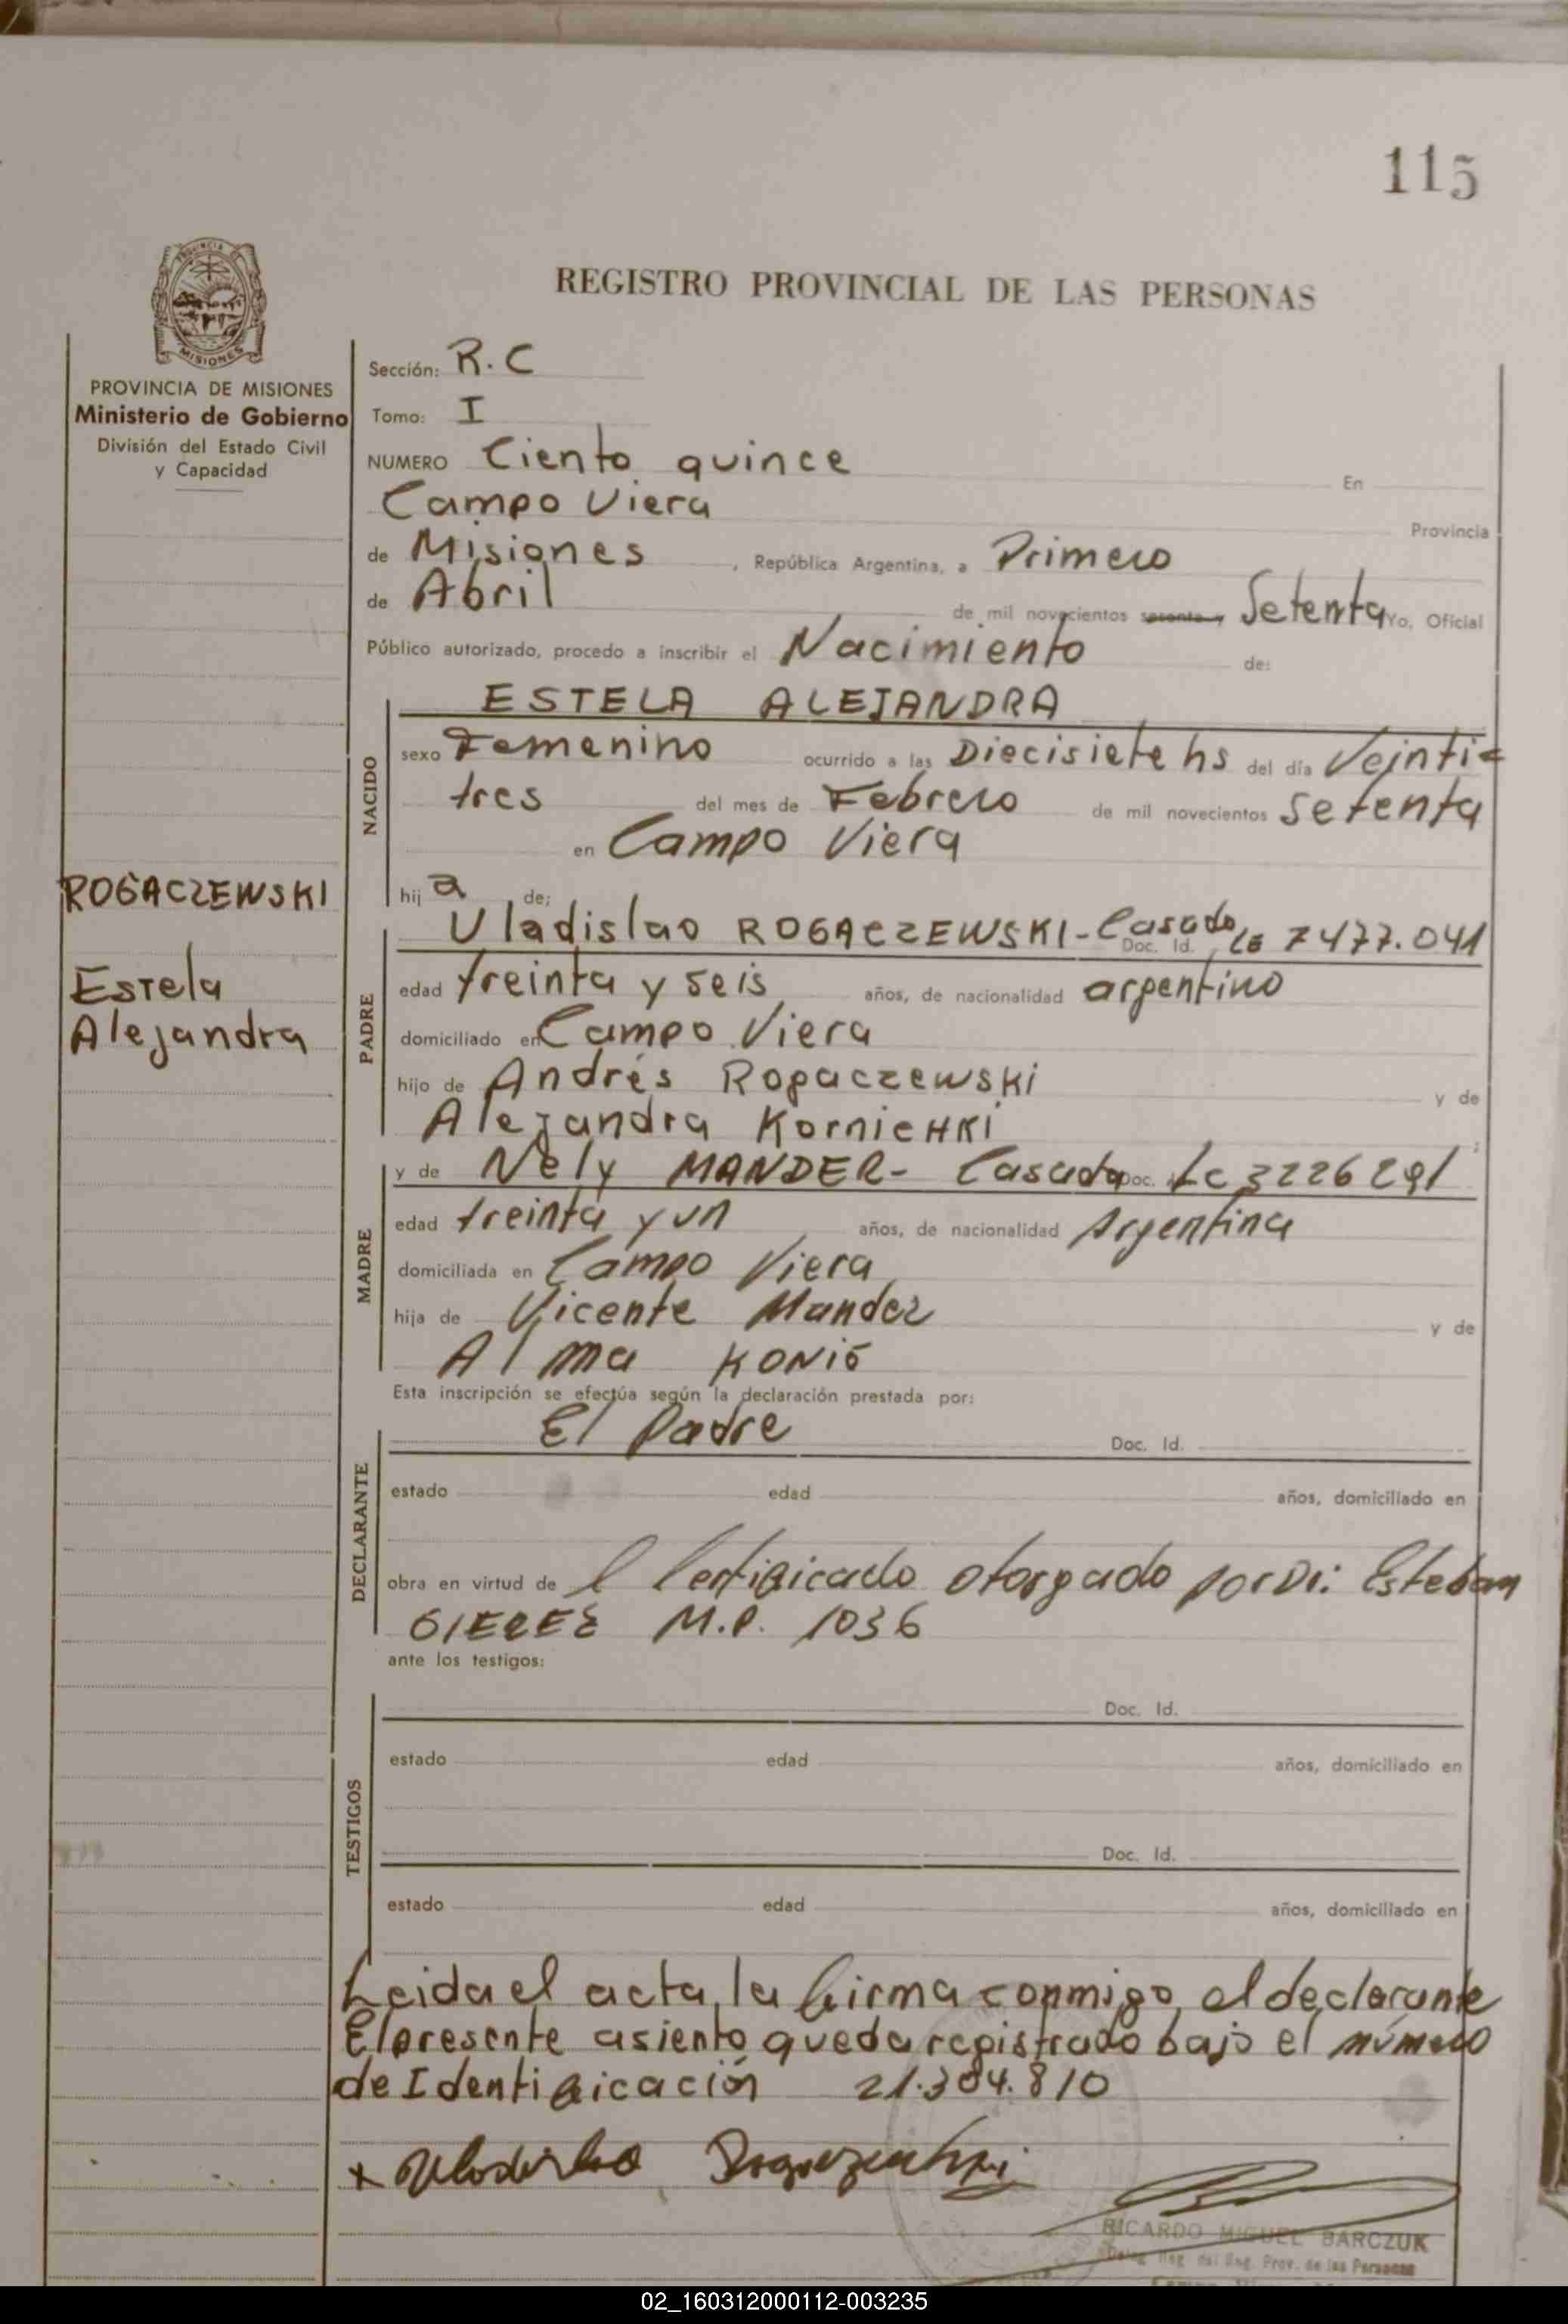 115
PROVINCIA DE
MISIONES
REGISTRO PROVINCIAL DE LAS PERSONAS
PROVINCIA DE MISIONES
Ministerio de Gobierno
División del Estado Civil
y Capacidad
ROGACZEWSKI
Estela
Alejandra
Sección: R.C
Tomo: I
NUMERO Ciento quince En
Campo Viera Provincia
de Misiones, República Argentina, a Primero
de Abril de mil novecientos sesenta y Setenta Yo, Oficial
Público autorizado, procedo a inscribir el Nacimiento de:
ESTELA ALEJANDRA
NACIDO
sexo Femenino ocurrido a las Diecisiete hs del día Veinti=
tres del mes de Febrero de mil novecientos Setenta
en Campo Viera
hij a de:
PADRE
Vladislao ROGACZEWSKI- Casado Doc. Id. LE 7477.041
edad treinta y seis años, de nacionalidad argentino
domiciliado en Campo Viera
hijo de Andrés Rogaczewski y de
Alejandra
MADRE
y de Nely MANDER- Casada Doc. LC 3226291
edad treinta y un años, de nacionalidad Argentina
domiciliada en Campo Viera
hija de Vicente Mander y de
Alma
Esta inscripción se efectúa según la declaración prestada por:
DECLARANTE
El Padre Doc. Id.
estado edad años, domiciliado en
obra en virtud de l Certificado otorgado por Dr: Esteban
M.P. 1036
ante los testigos:
TESTIGOS
Doc. Id.
estado edad años, domiciliado en
Doc. Id.
estado edad años, domiciliado en
Leida el acta, la firma conmigo, el declarante
El presente asiento queda registrado bajo el número
de Identificación 21.304.810
RICARDO MIGUEL BARCZUK
Prov. de las Personas
02_160312000112-003235